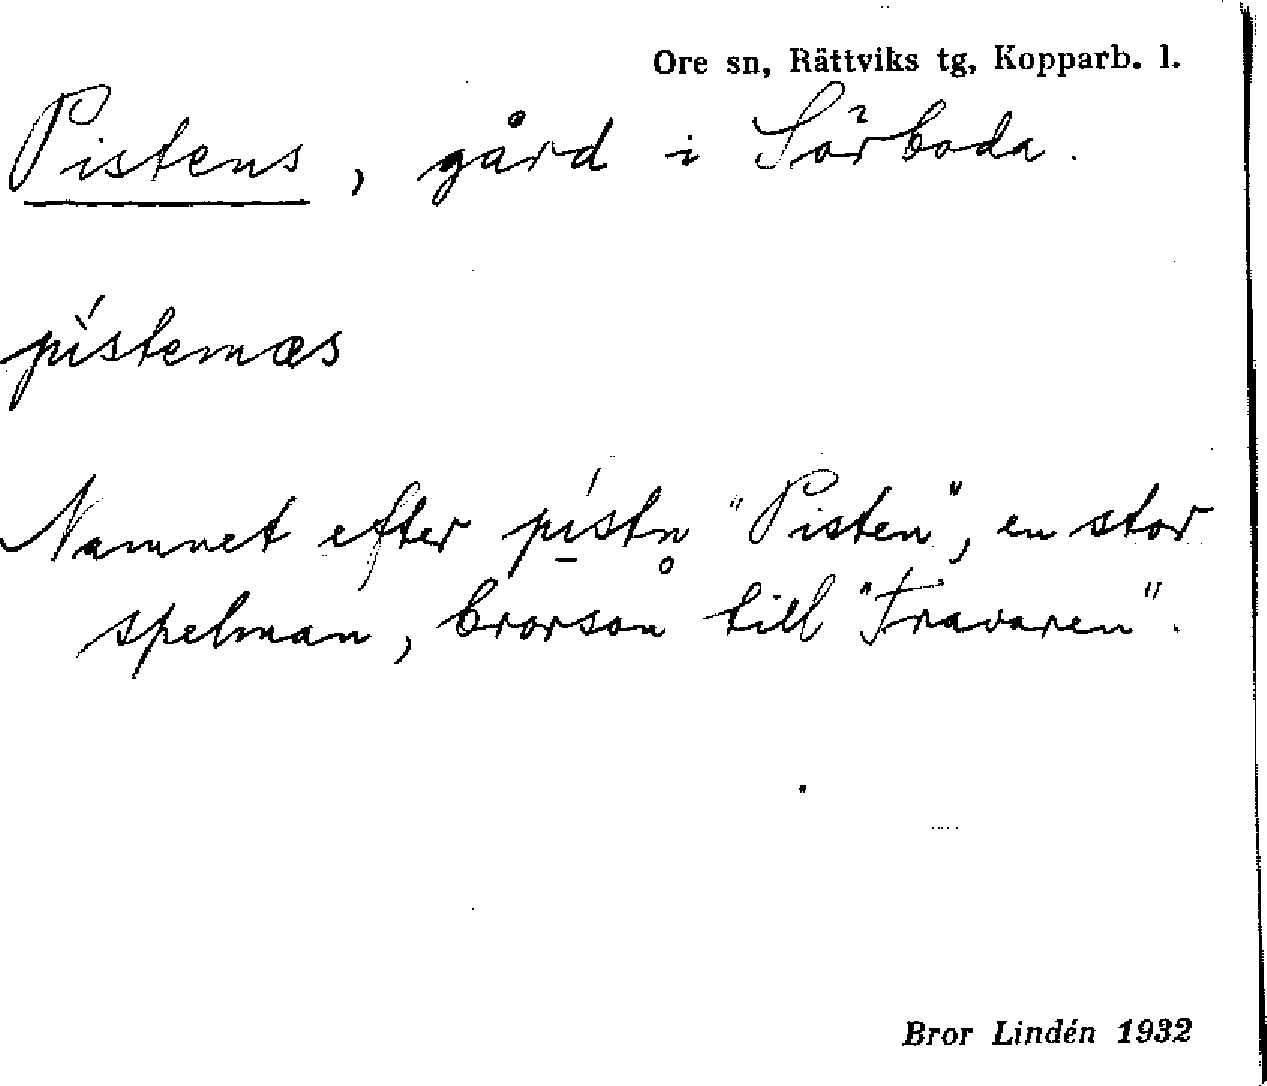 Ore sn, Rättviks tg, Kopparb. l.
Pistens, gård i Sörboda.
pı́stemæs
Namnet efter pı̠́stn̥ "Pisten", en stor
spelman, brorson till "Travaren".
Bror Lindén 1932